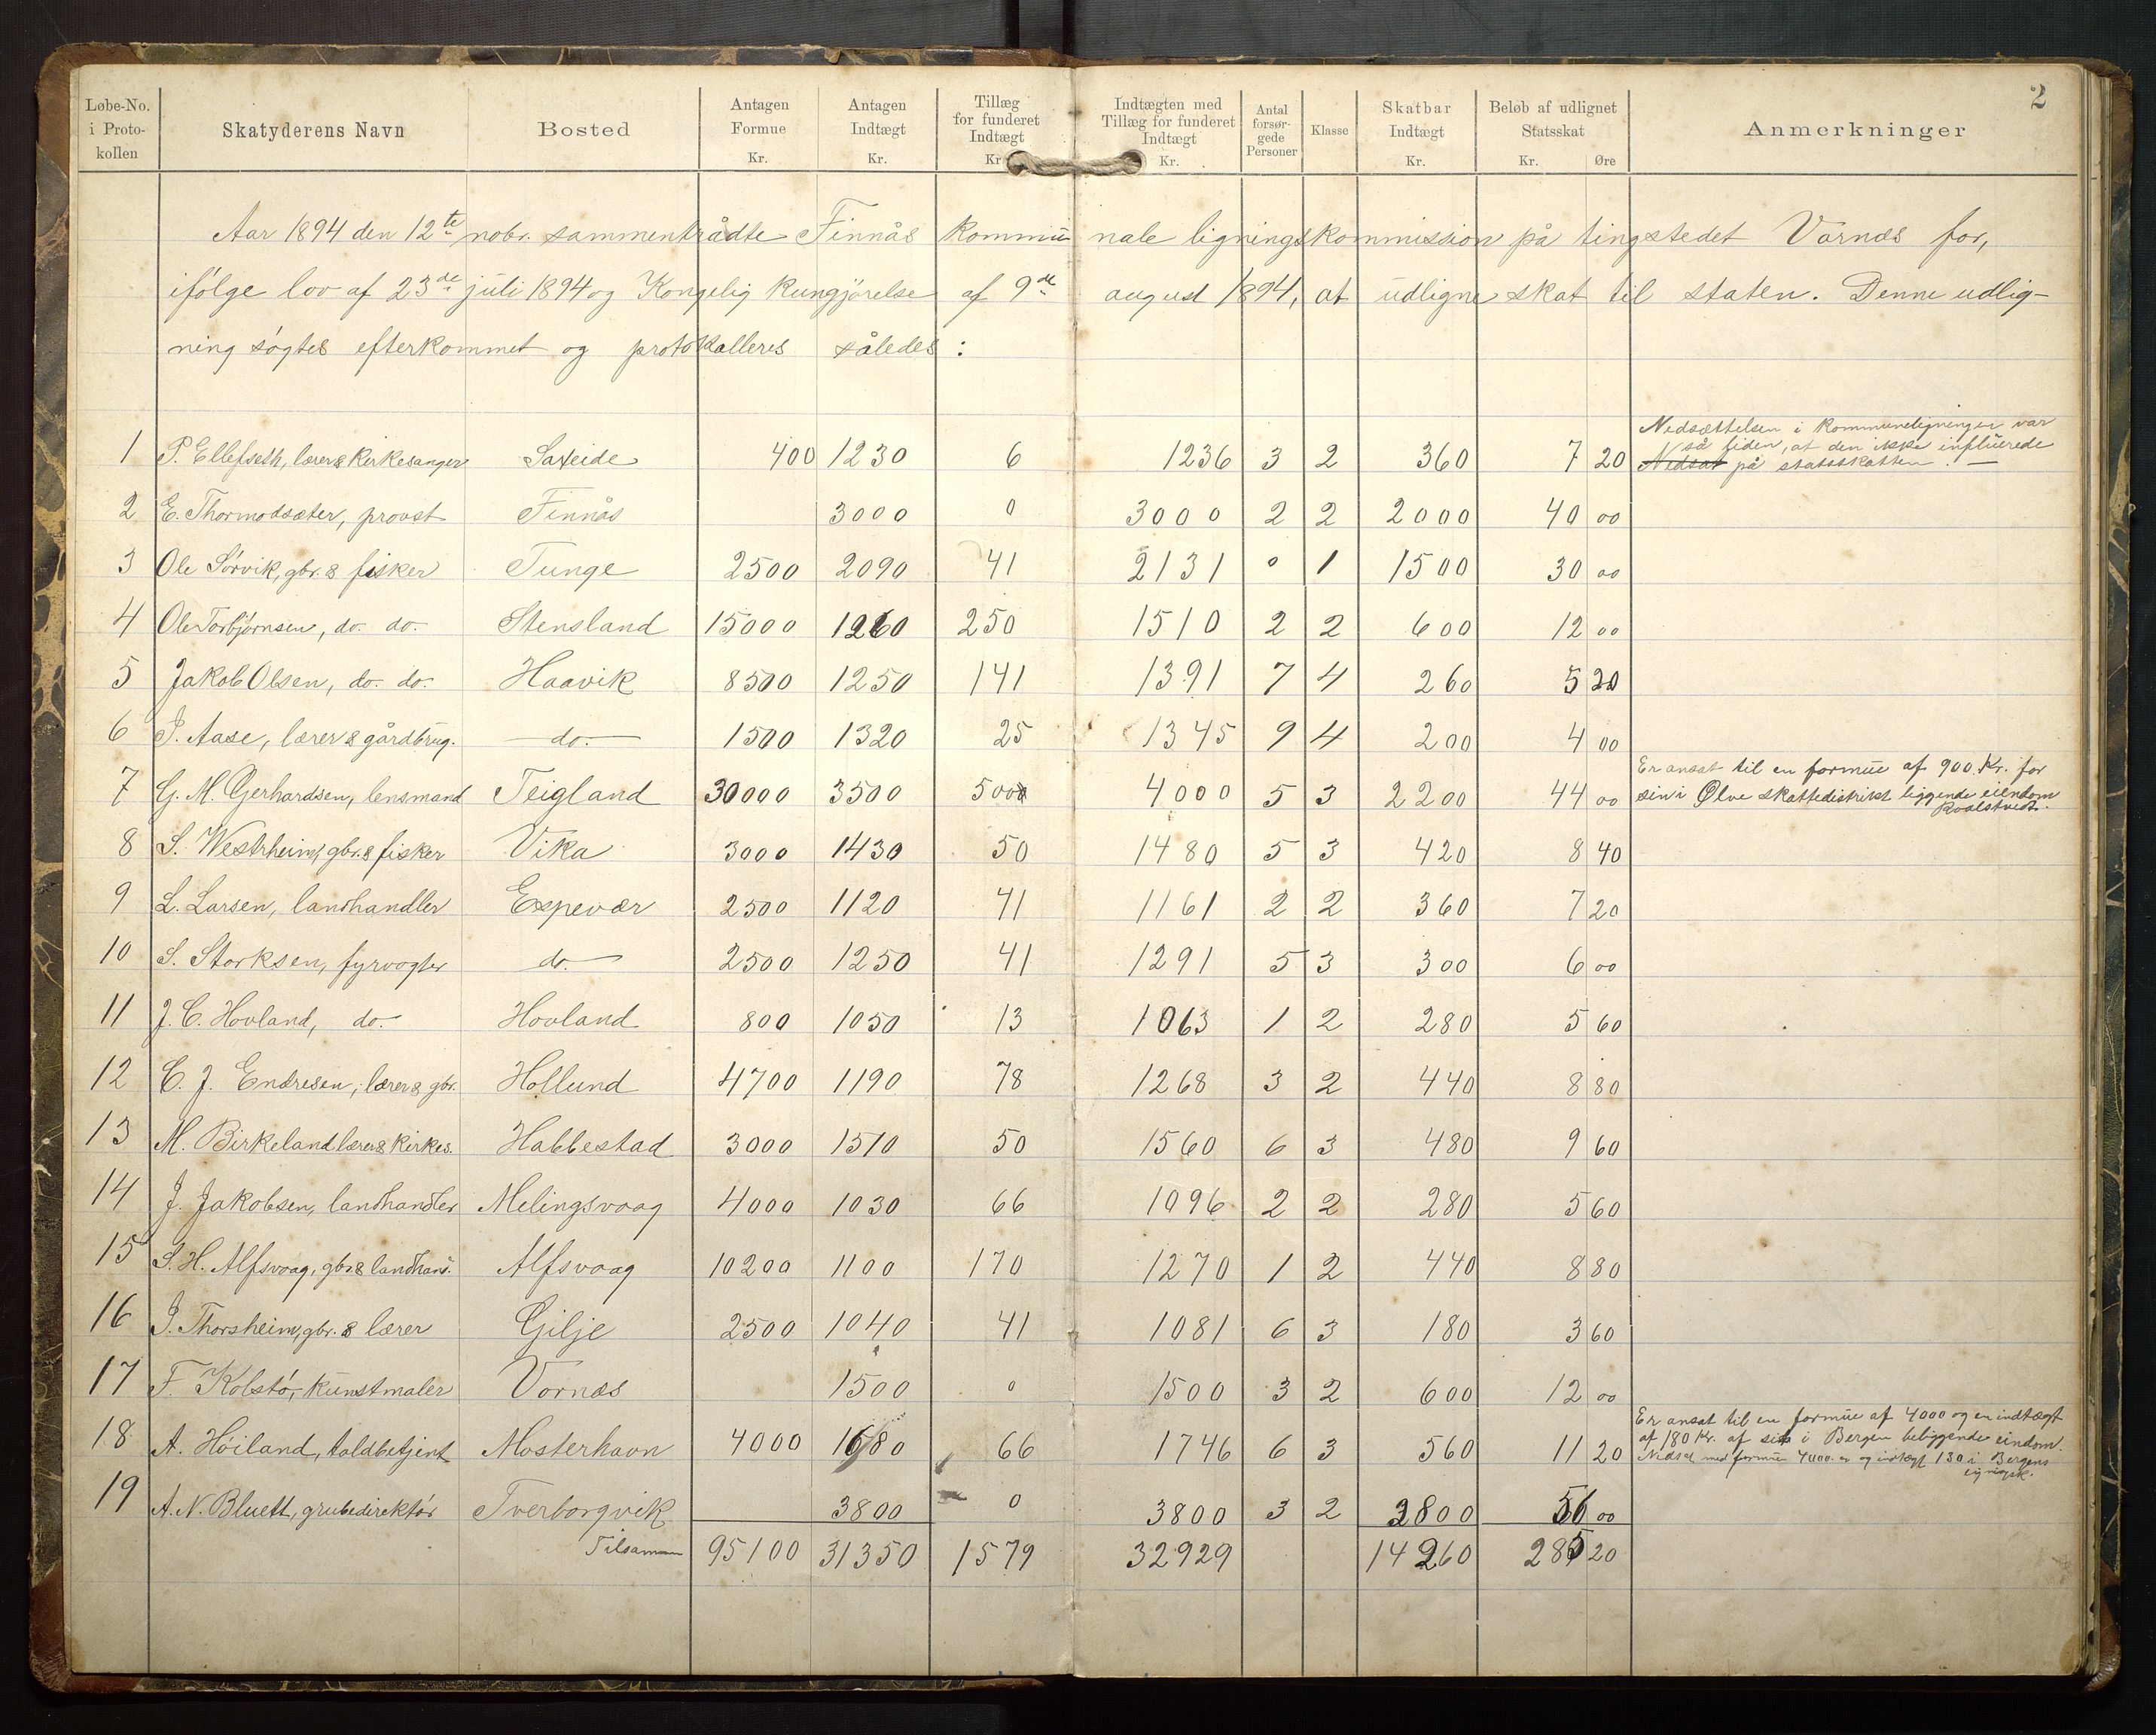 2
Løbe-No. i Proto-kollen | Skatyderens Navn | Bosted | Antagen Formue Kr. | Antagen Indtægt Kr. | Tillæg for funderet Indtægt Kr. | Indtægten med Tillæg for funderet Indtægt Kr. | Antal forsør-gede Personer | Klasse | Skatbar Indtægt Kr. | Beløb af udlignet Statsskat Kr. Øre | Anmerkninger
Aar 1894 den 12te nobr. sammentrådte Finnås kommunale ligningskommission på tingstedet Vornæs for,
ifølge lov af 23de juli 1894 og Kongelig kungjørelse af 9de august 1894, at udligne skat til staten. Denne udlig-
ning søgtes efterkommet og protokalleres således:
Nedsættelsen i kommuneligningen var
så liden, at den ikke influerede
1 P. Ellefsen, lærer & kirkesanger Saxeide 400 1230 6 1236 3 2 360 7 20 Nedsat på statsskatten. —
2 E. Thormodsæter, provst Finnås 3000 0 3000 2 2 2000 40 00
3 Ole Sørvik, gbr. & fisker Tunge 2500 2090 41 2131 0 1 1500 30 00
4 Ole Torbjørnsen, do. do. Stensland 15000 1260 250 1510 2 2 600 12 00
5 Jakob Olsen, do. do. Haavik 8500 1250 141 1391 7 4 260 5 20
6 J. Aase, lærer & gårdbrug. do. 1500 1320 25 1345 9 4 200 4 00
Er ansat til en formue af 900 Kr. for
7 G. M. Gerhardsen, lensmand Teigland 30000 3500 500 4000 5 3 2200 44 00 sin i Ølve skattedistrikt liggende eiendom
Roalstvedt.
8 S. Westrheim, gbr. & fisker Vika 3000 1430 50 1480 5 3 420 8 40
9 L. Larsen, landhandler Espevær 2500 1120 41 1161 2 2 360 7 20
10 S. Storksen, fyrvogter do. 2500 1250 41 1291 5 3 300 6 00
11 J. C. Hovland, do. Hovland 800 1050 13 1063 1 2 280 5 60
12 C. J. Endresen, lærer & gbr. Hollund 4700 1190 78 1268 3 2 440 8 80
13 M. Birkeland lærer & kirkes. Habbestad 3000 1510 50 1560 6 3 480 9 60
14 J. Jakobsen, landhandler Melingsvaag 4000 1030 66 1096 2 2 280 5 60
15 S. H. Alfsvaag, gbr. & landhand. Alfsvaag 10200 1100 170 1270 1 2 440 8 80
16 J. Thorsheim, gbr. & lærer Gilje 2500 1040 41 1081 6 3 180 3 60
17 F. Kolstø, kunstmaler Vornæs 1500 0 1500 3 2 600 12 00
Er ansat til en formue af 4000 og en indtægt
af 180 Kr. af sin i Bergen beliggende eindom.
18 A. Høiland, toldbetjent Mosterhavn 4000 1680 66 1746 6 3 560 11 20 Nedsat med formue 4000 og indtægt 130 i Bergens
19 A. N. Bluett, grubedirektør Tverborgvik 3800 0 3800 3 2 2800 56 00
Tilsammen 95100 31350 1579 32929 14260 285 20